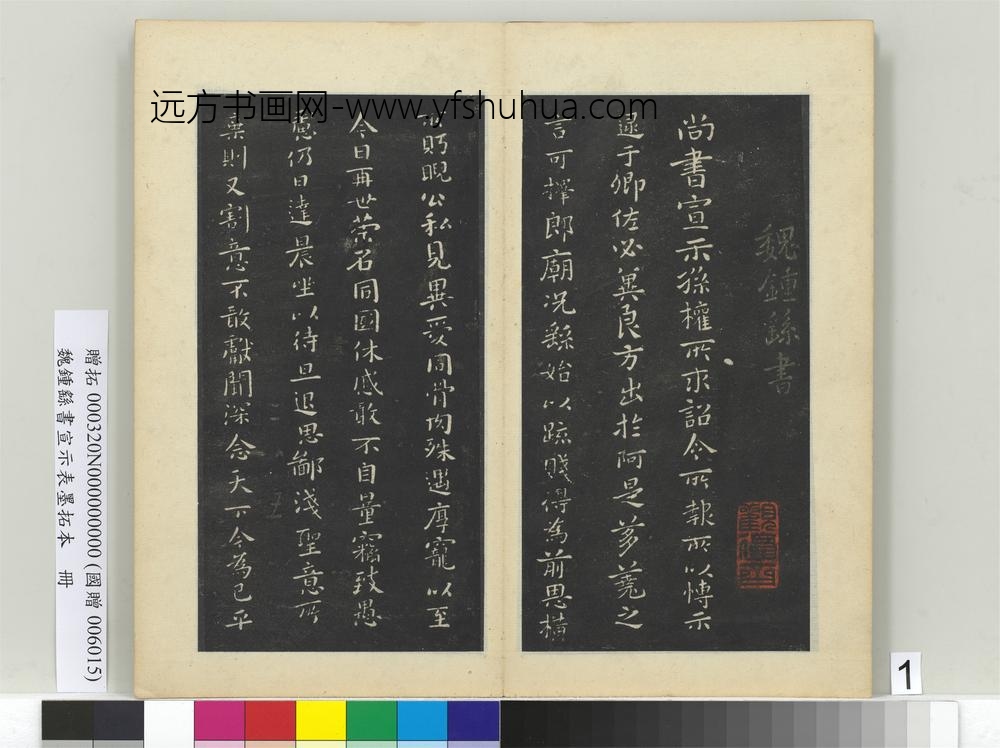 远方书画网-www.yfshuhua.com
魏鍾繇書
尚書宣示孫權所求詔令所報所以博示
逮于卿佐必冀良方出於阿是芻蕘之
言可擇郎廟況繇始以疏賤得為前恩橫
所眄睨公私見異愛同骨肉殊遇厚寵以至
今日再世榮名同國休慼敢不自量竊致愚
慮仍日達晨坐以待旦退思鄙淺聖意所
棄則又割意不敢獻聞深念天下今為已平
贈拓 000320N000000000 (國贈 006015)
魏鍾繇書宣示表墨拓本 冊
1